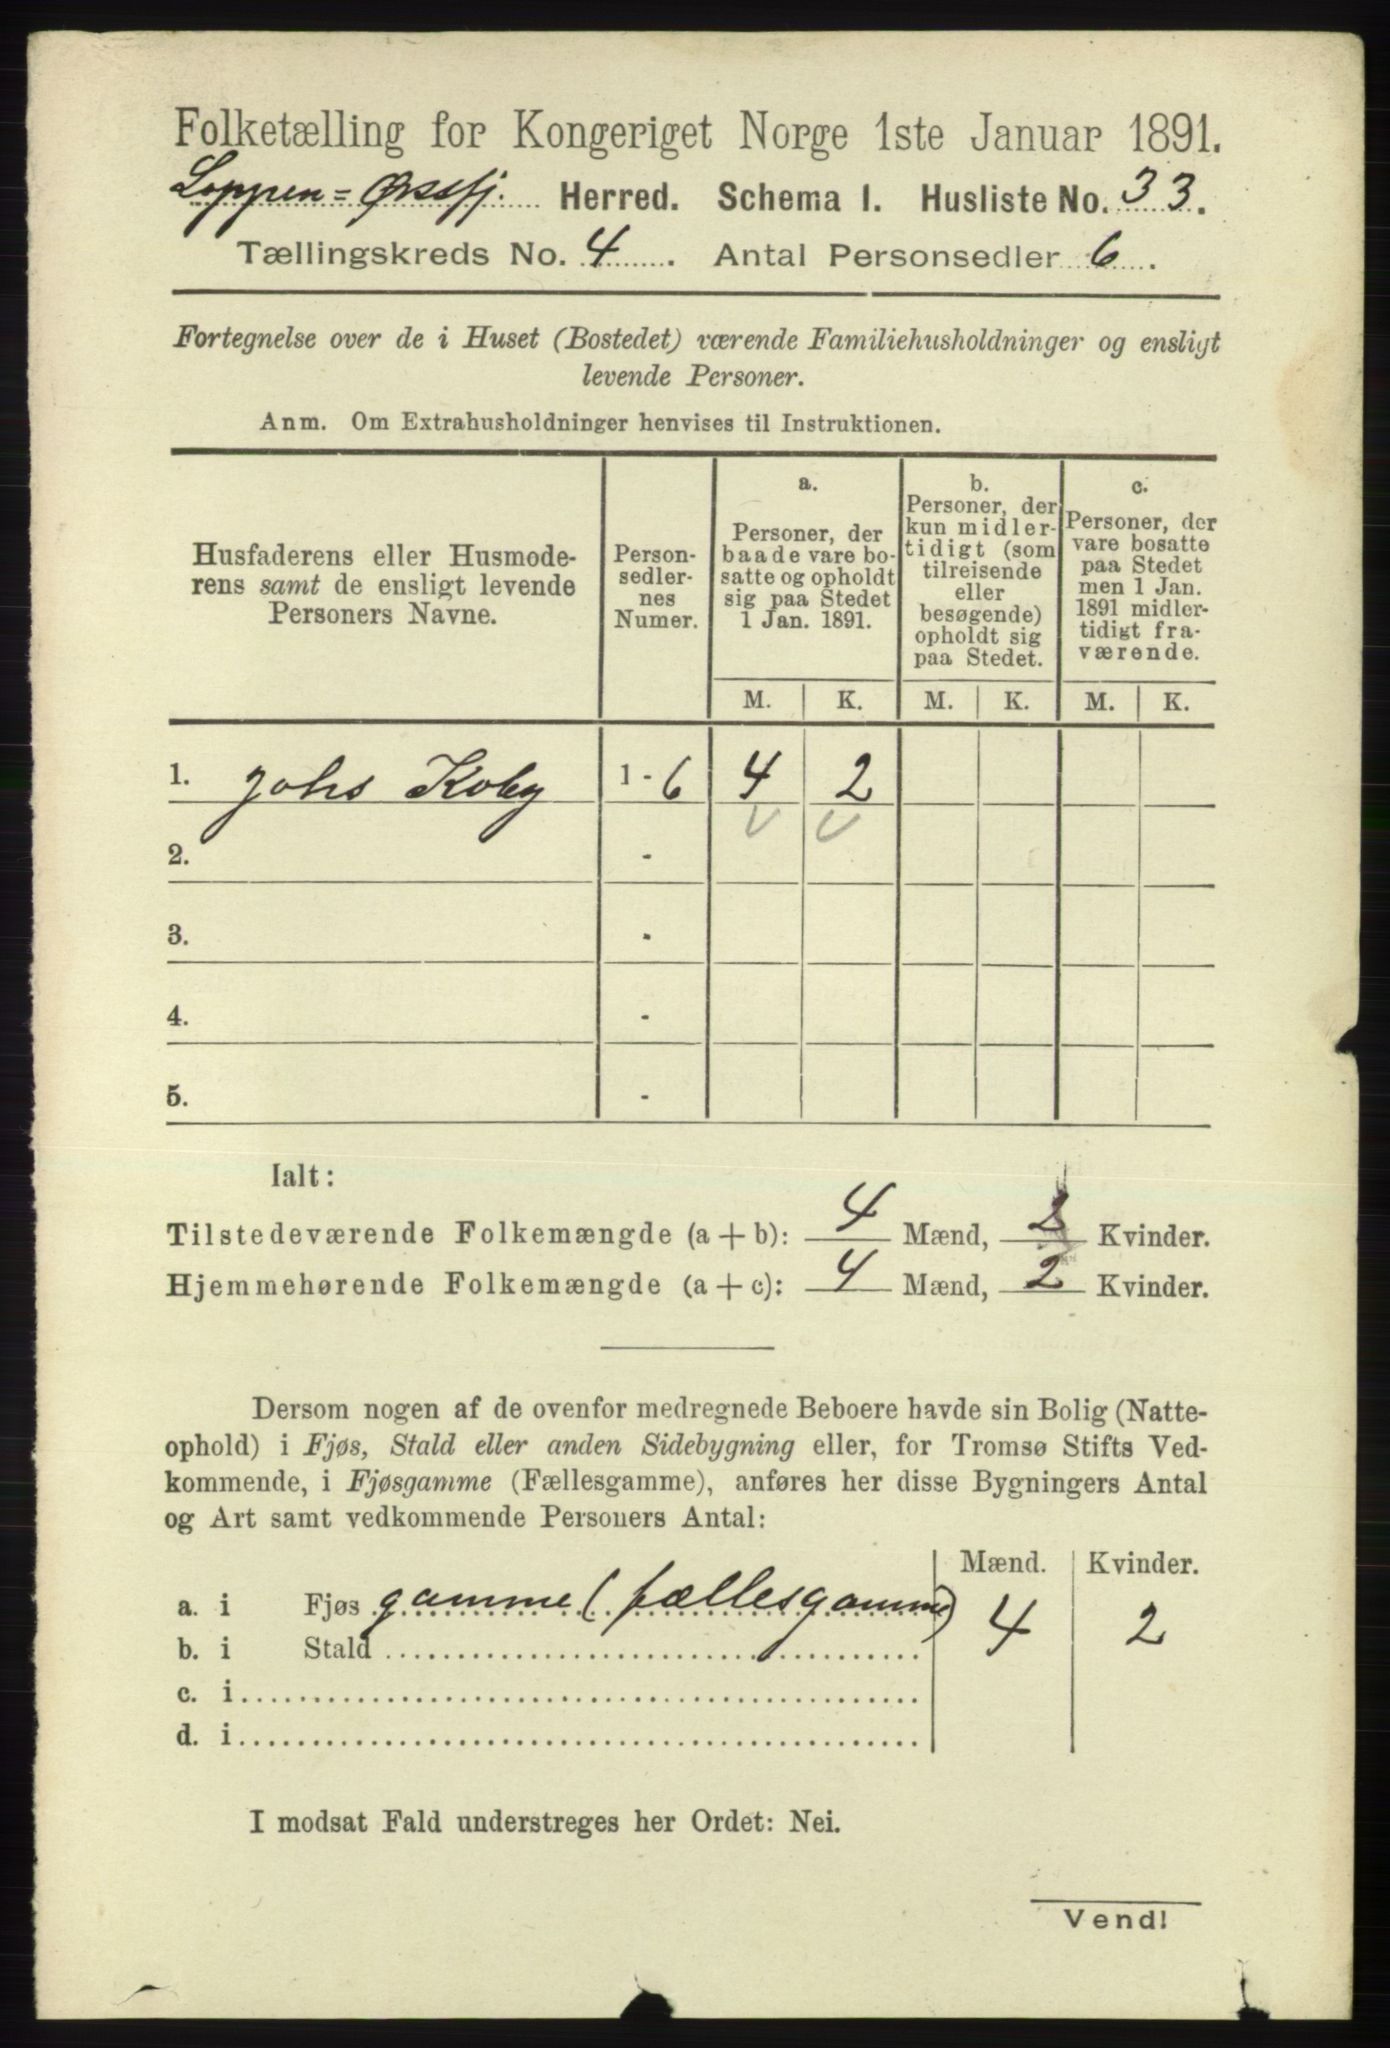 Folketælling for Kongeriget Norge 1ste Januar 1891.
Loppen=Øxsfj. Herred. Schema I. Husliste No. 33.
Tællingskreds No. 4. Antal Personsedler 6.
Fortegnelse over de i Huset (Bostedet) værende Familiehusholdninger og ensligt
levende Personer.
Anm. Om Extrahusholdninger henvises til Instruktionen.
Husfaderens eller Husmode-
rens samt de ensligt levende
Personers Navne.
Person-
sedler-
nes
Numer.
a.
Personer, der
baade vare bo-
satte og opholdt
sig paa Stedet
1 Jan. 1891.
b.
Personer, der
kun midler-
tidigt (som
tilreisende
eller
besøgende)
opholdt sig
paa Stedet.
c.
Personer, der
vare bosatte
paa Stedet
men 1 Jan.
1891 midler-
tidigt fra-
værende.
M. K. M. K. M. K.
1. Johs Koby 1 - 6 4 2
2. -
3. -
4. -
5. -
Ialt:
Tilstedeværende Folkemængde (a + b): 4 Mænd, 2 Kvinder.
Hjemmehørende Folkemængde (a + c): 4 Mænd, 2 Kvinder.
Dersom nogen af de ovenfor medregnede Beboere havde sin Bolig (Natte-
ophold) i Fjøs, Stald eller anden Sidebygning eller, for Tromsø Stifts Ved-
kommende, i Fjøsgamme (Fællesgamme), anføres her disse Bygningers Antal
og Art samt vedkommende Personers Antal:
Mænd. Kvinder.
a. i Fjøs gamme (fællesgamme) 4 2
b. i Stald
c. i
d. i
I modsat Fald understreges her Ordet: Nei.
Vend!